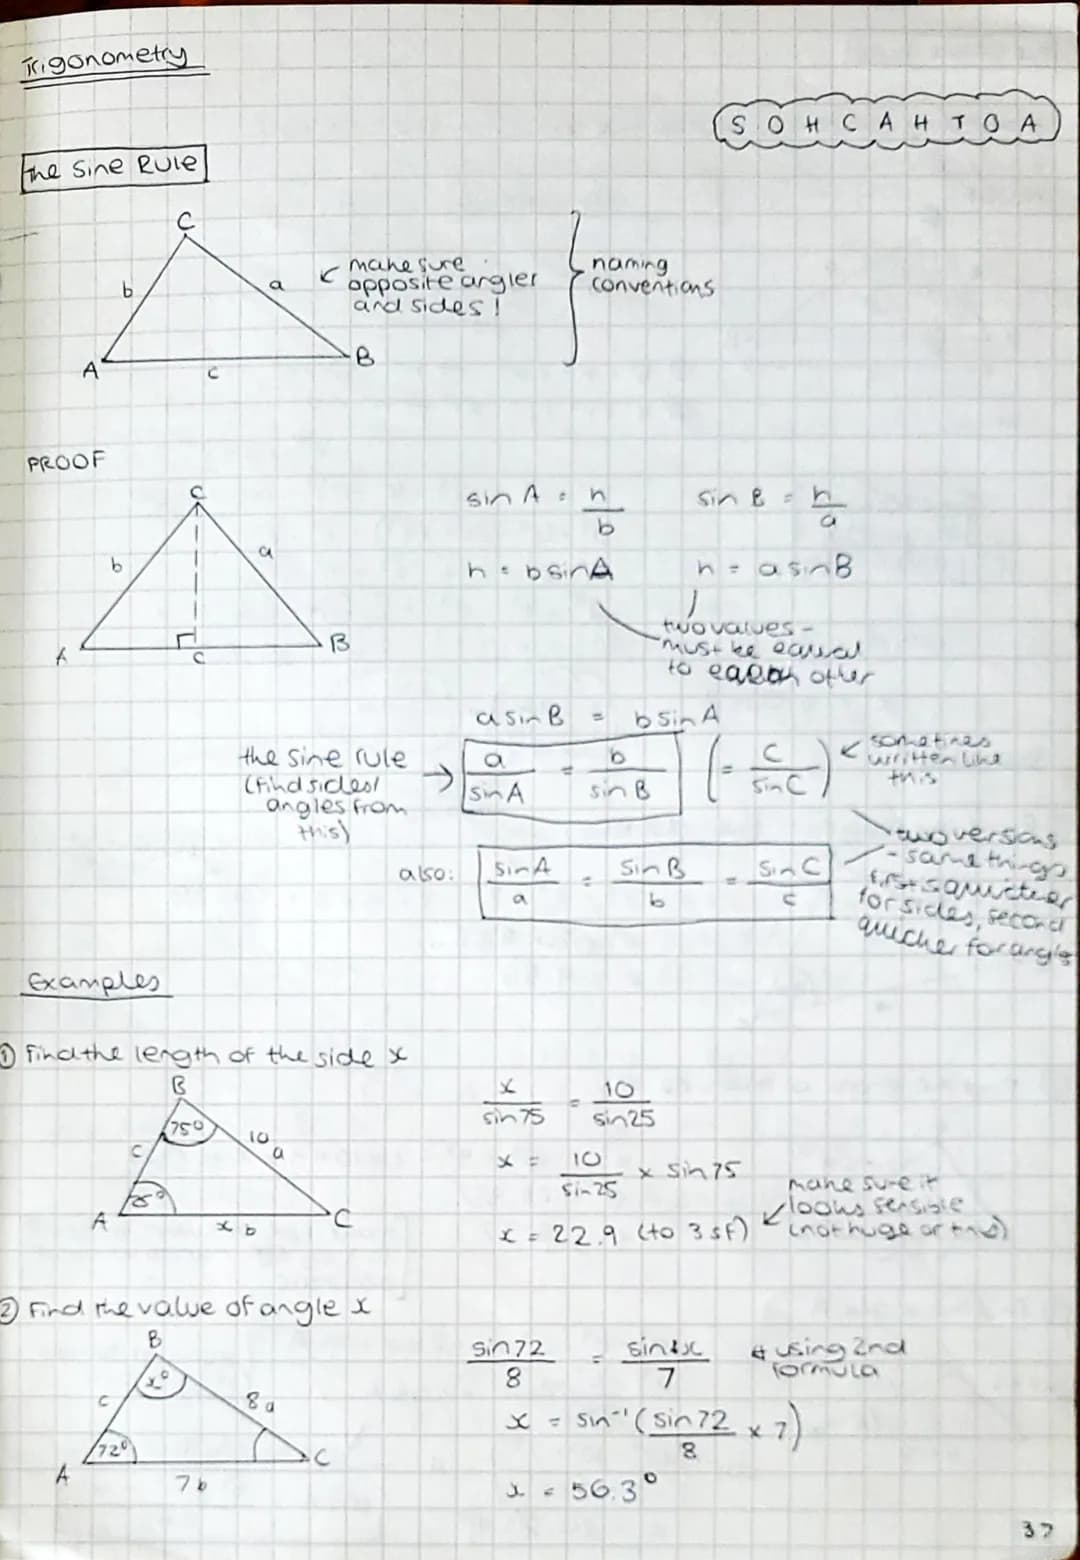 Trigonometry
SOHCAHTOA
The Sine Rule
C
b
a
make sure
opposite angles
and sides!
naming
conventions
A
c
B
PROOF
C
b
a
A
c
B
sin A = h/b
sin B = h/a
h = b sin A
h = a sin B
two values -
must be equal
to each other
a sin B = b sin A
the sine rule
(find sides/
angles from
this)
a/sin A = b/sin B (= c/sin C)
sometimes
written like
this
also:
sin A/a = sin B/b = sin C/c
two versions
- same things
first quicker
for sides, second
quicker for angles
Examples
① Find the length of the side x
B
75°
10
a
c
25°
A
x b
C
x/sin 75 = 10/sin 25
x = 10/sin 25 × sin 75
x = 22.9 (to 3 sf)
make sure it
looks sensible
(not huge or tiny)
② Find the value of angle x
B
x°
c
8 a
72°
A
7 b
C
sin 72/8 = sin x/7
using 2nd
formula
x = sin⁻¹ (sin 72/8 × 7)
x = 56.3°
37